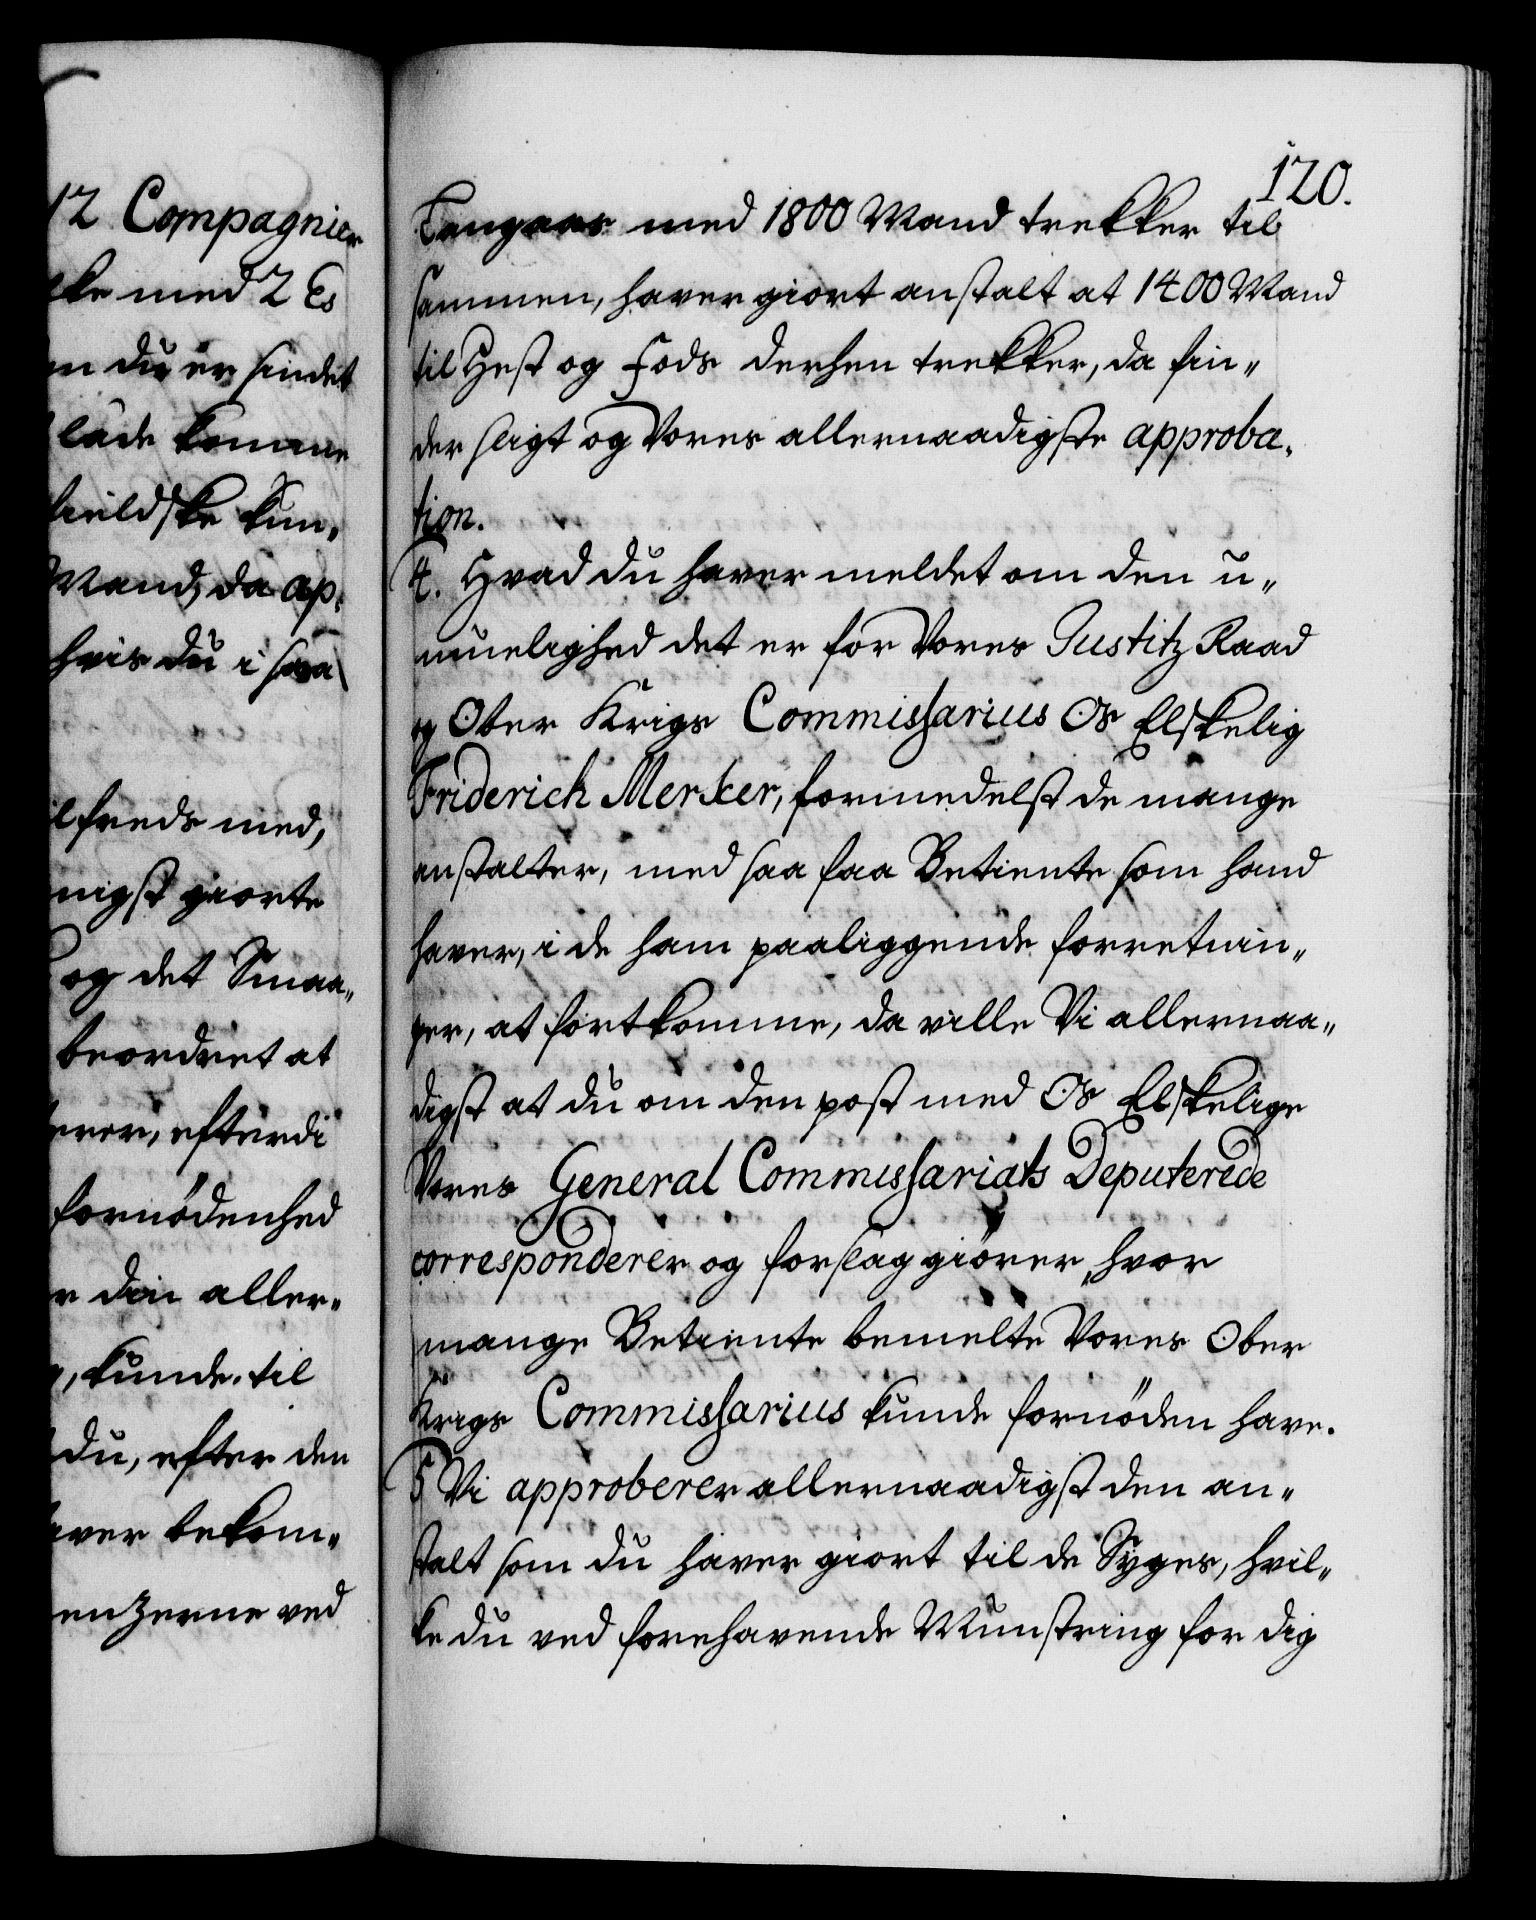 12 Compagnier
ke med 2 Es
du er sindet
lade komme
fieldske kun,
Mand, da ap,
hvis du i saa
freds med,
nigst giorte
og det Smaa,,
beordret at
efterdi
fornødenhed
din aller,,
kunde til
du, efter den
bekom,,
ved
120.
med 1800 Mand trekker til
sammen, haver giort anstalt at 1400 Mand
til Hest og Fods derhen trekker, da fin,,
der sligt og Vores allernaadigste approba,
tion.
4. Hvad du haver meldet om den u,,
muelighed det er for Vores Justitz Raad
og Ober Krigs Commissarius Os Elskelig
Friderich Merker, formedelst de mange
anstalter, med saa faa Betiente som hand
haver, i de ham paaliggende forretnin,,
ger, at fortkomme, da ville Vi allernaa,,
digst at du om den post med Os Elskelige
Vores General Commissariats Deputerede
corresponderer og forslag giörer, hvor
mange Betiente bemelte Vores Ober
Krigs Commissarius kunde fornöden have.
5 Vi approberer allernaadigst den an,,
stalt som du haver giort til de Syges, hvil,,
ke du ved forehavende Munstring for dig